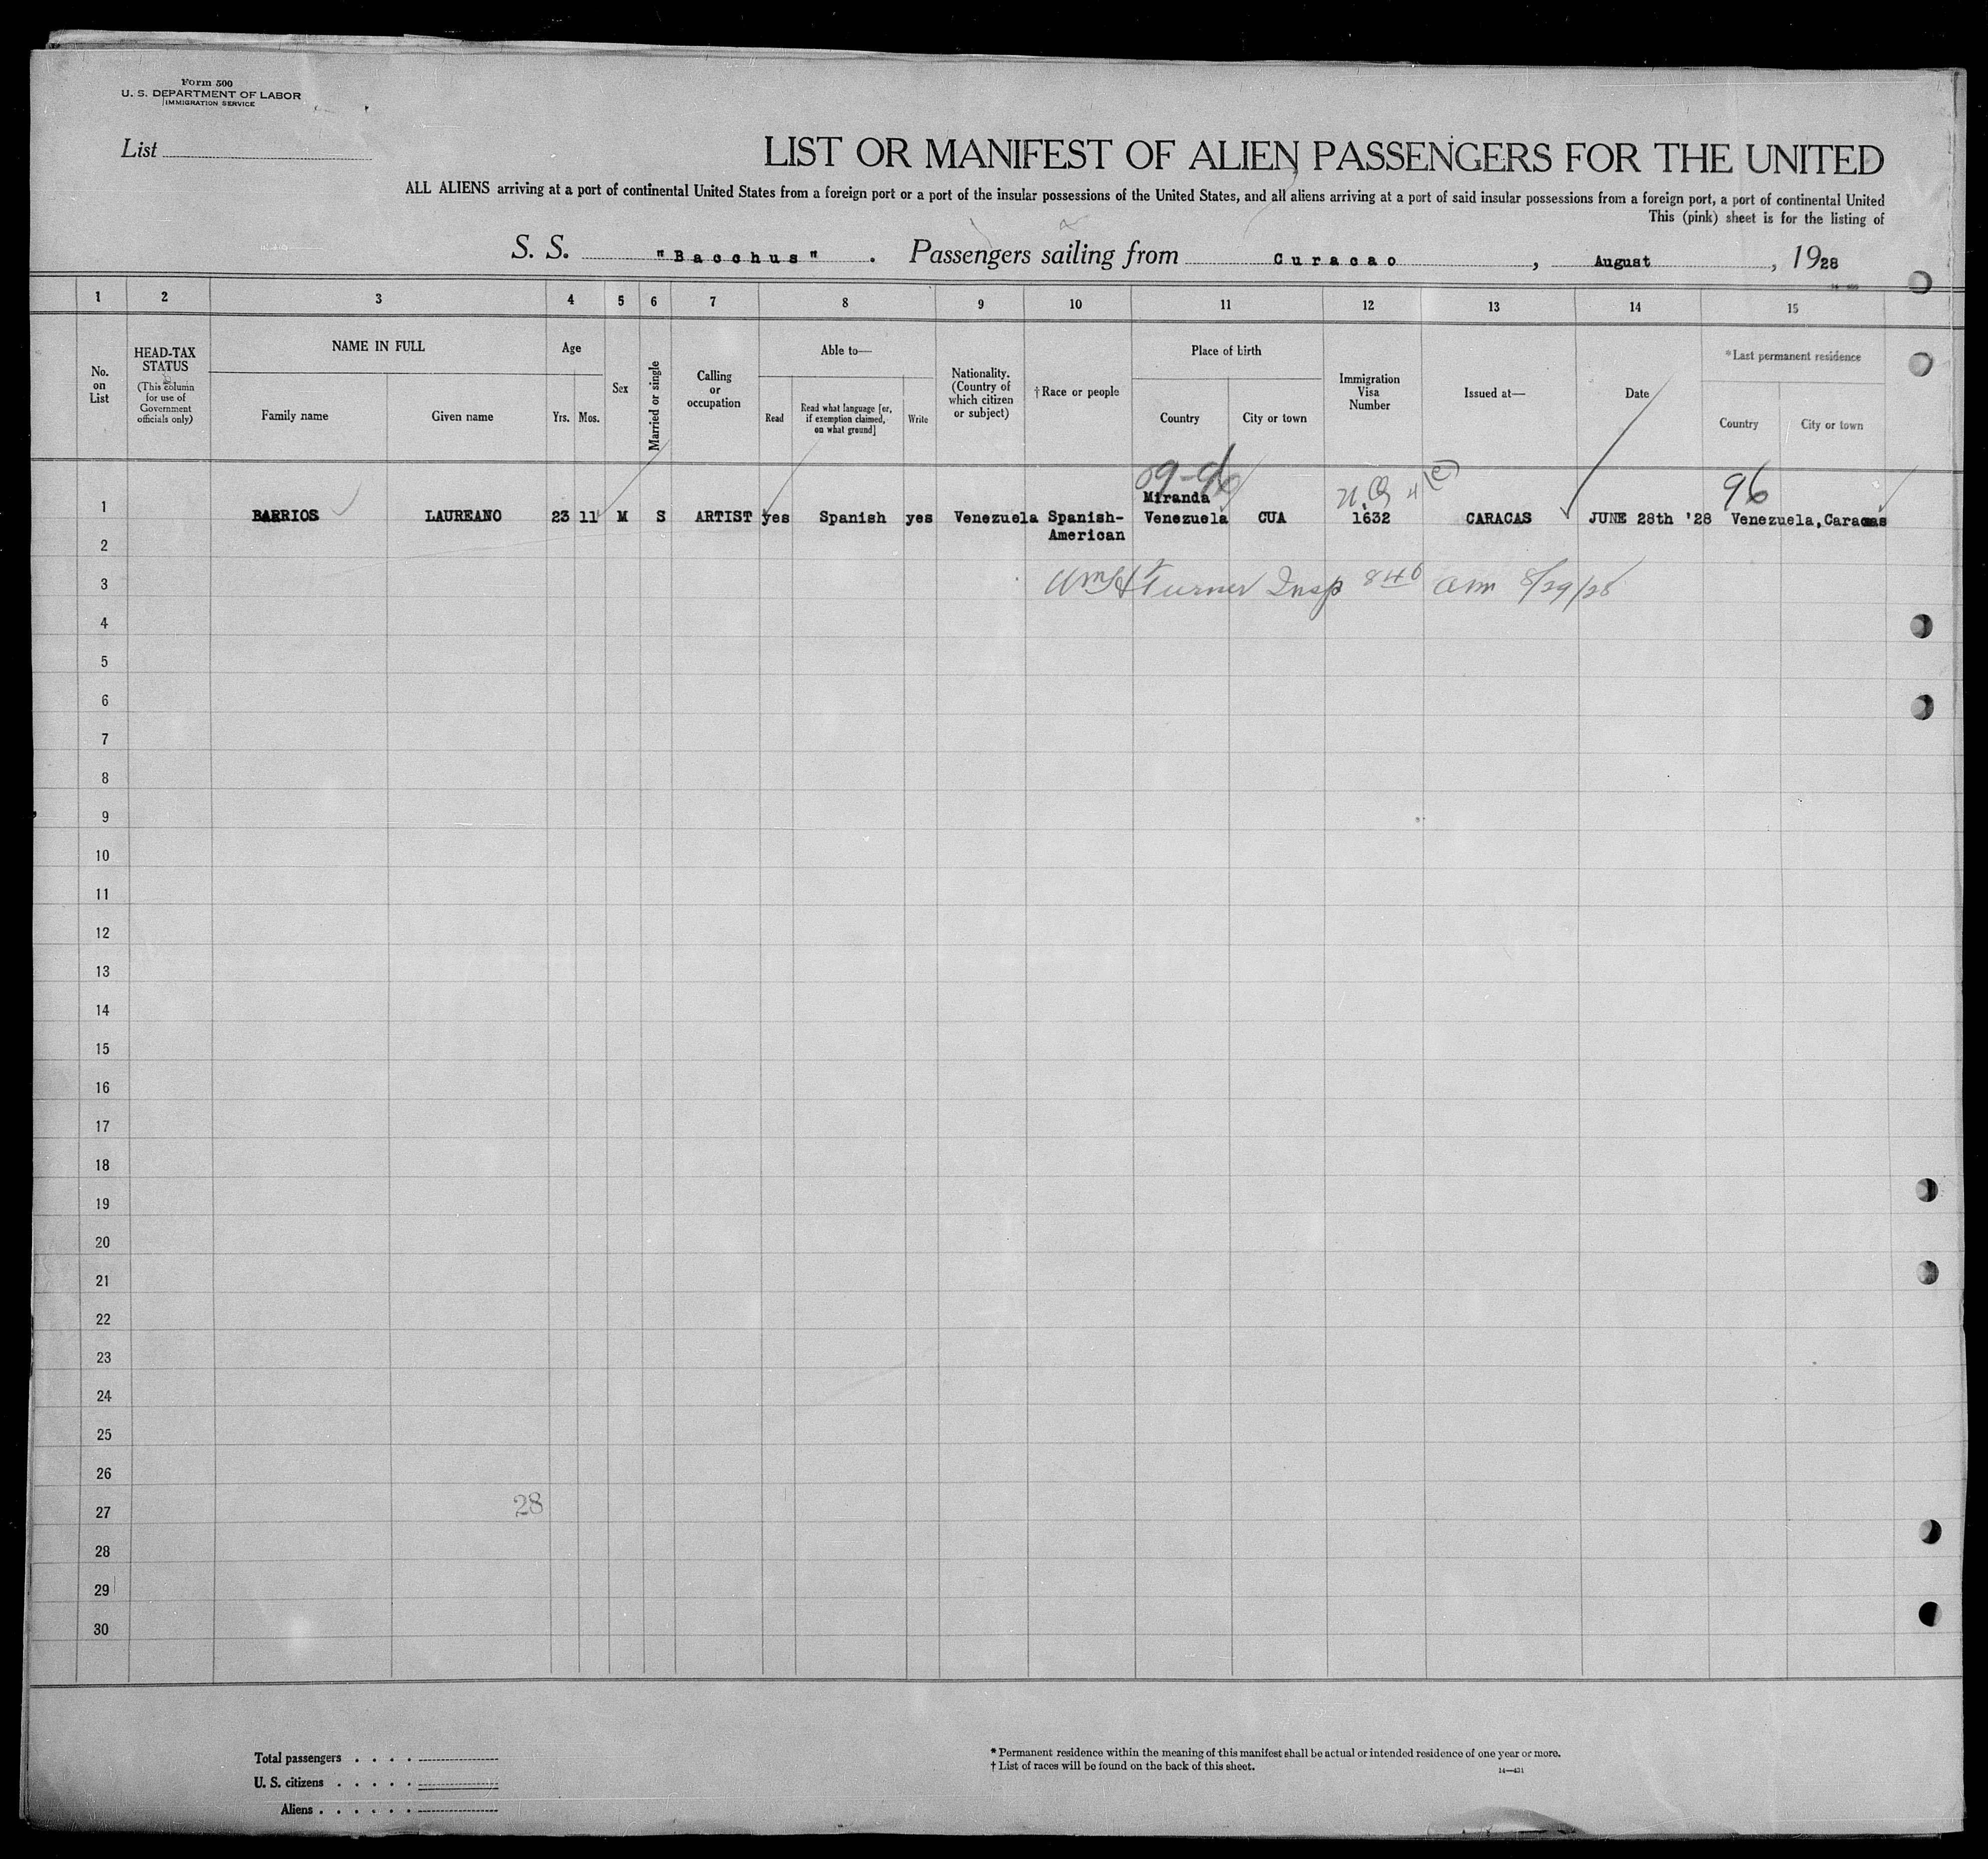 Form 500
U. S. DEPARTMENT OF LABOR
IMMIGRATION SERVICE
List
LIST OR MANIFEST OF ALIEN PASSENGERS FOR THE UNITED
ALL ALIENS arriving at a port of continental United States from a foreign port or a port of the insular possessions of the United States, and all aliens arriving at a port of said insular possessions from a foreign port, a port of continental United
This (pink) sheet is for the listing of
S. S. "Bacchus". Passengers sailing from Curacao, August, 1928
1 2 3 4 5 6 7 8 9 10 11 12 13 14 15
No. on List
HEAD-TAX STATUS
(This column for use of Government officials only)
NAME IN FULL
Family name Given name
Age
Yrs. Mos.
Sex
Married or single
Calling or occupation
Able to—
Read
Read what language [or, if exemption claimed, on what ground]
Write
Nationality. (Country of which citizen or subject)
†Race or people
Place of birth
Country City or town
Immigration Visa Number
Issued at—
Date
*Last permanent residence
Country City or town
09-96 4 (c) 96
Miranda
1 BARRIOS LAUREANO 23 11 M S ARTIST yes Spanish yes Venezuela Spanish- Venezuela CUA 1632 CARACAS JUNE 28th '28 Venezuela, Caracas
American
2
3 Wm H Turner Insp 846 am 8/29/28
4
5
6
7
8
9
10
11
12
13
14
15
16
17
18
19
20
21
22
23
24
25
26
27 28
28
29
30
Total passengers . . . .
U. S. citizens . . . . .
Aliens . . . . . .
*Permanent residence within the meaning of this manifest shall be actual or intended residence of one year or more.
†List of races will be found on the back of this sheet.
14—431